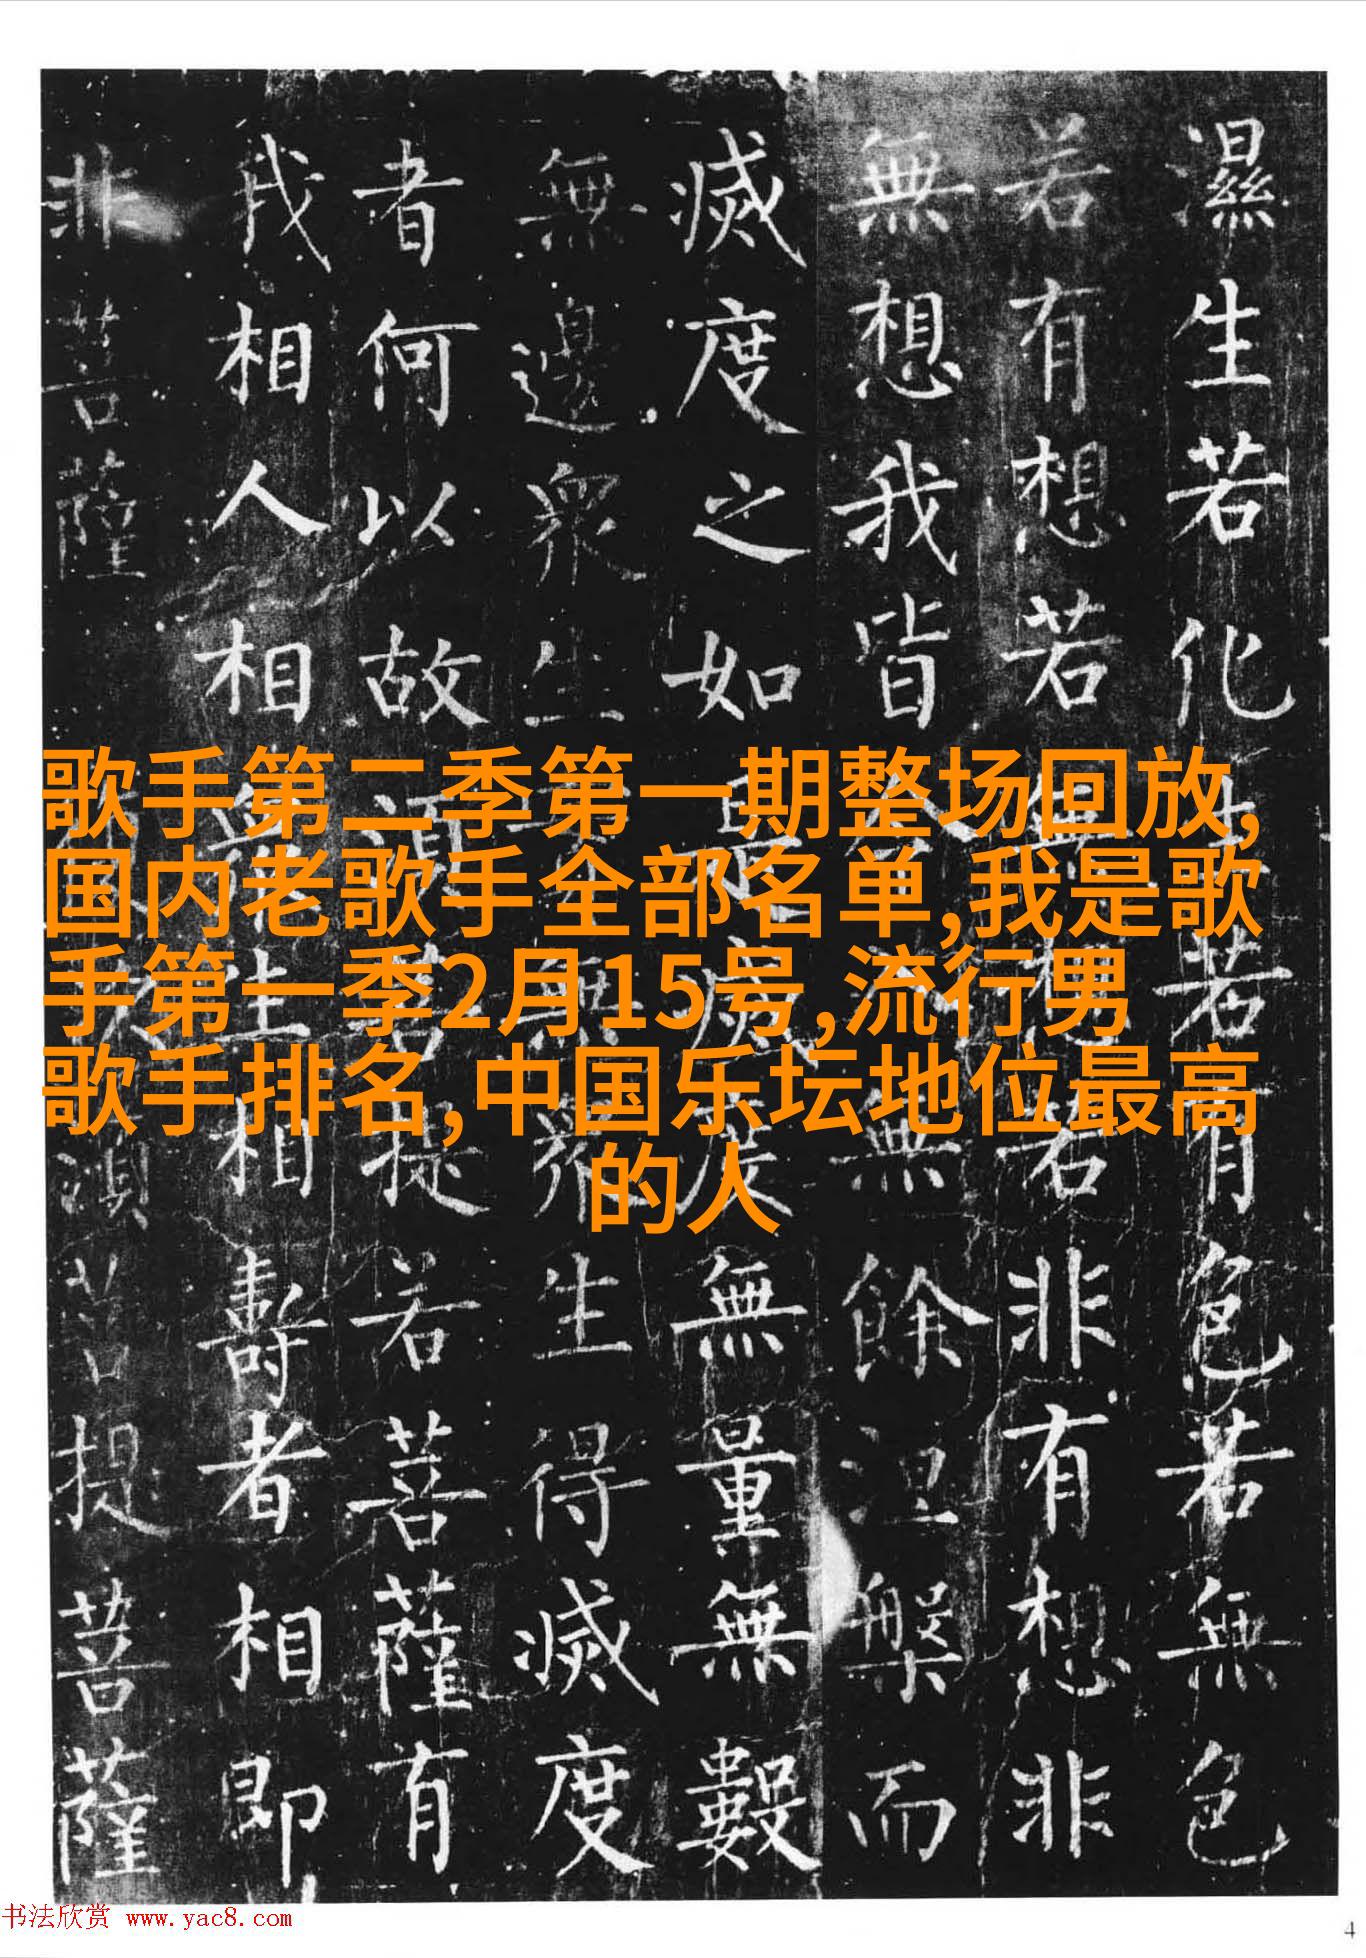 歌手第二季第一期整场回放,
国内老歌手全部名单,我是歌
手第一季2月15号,流行男
歌手排名,中国乐坛地位最高
的人
濕生若化生若有色若無色
若有想若無想若非有想非
無想我皆令入無餘涅槃而
滅度之如是滅度無量無數
無邊眾生實無眾生得滅度
者何以故須菩提若菩薩有
我相人相眾生相壽者相即
非菩薩 次須菩提菩薩
书法欣赏 www.yac8.com
4